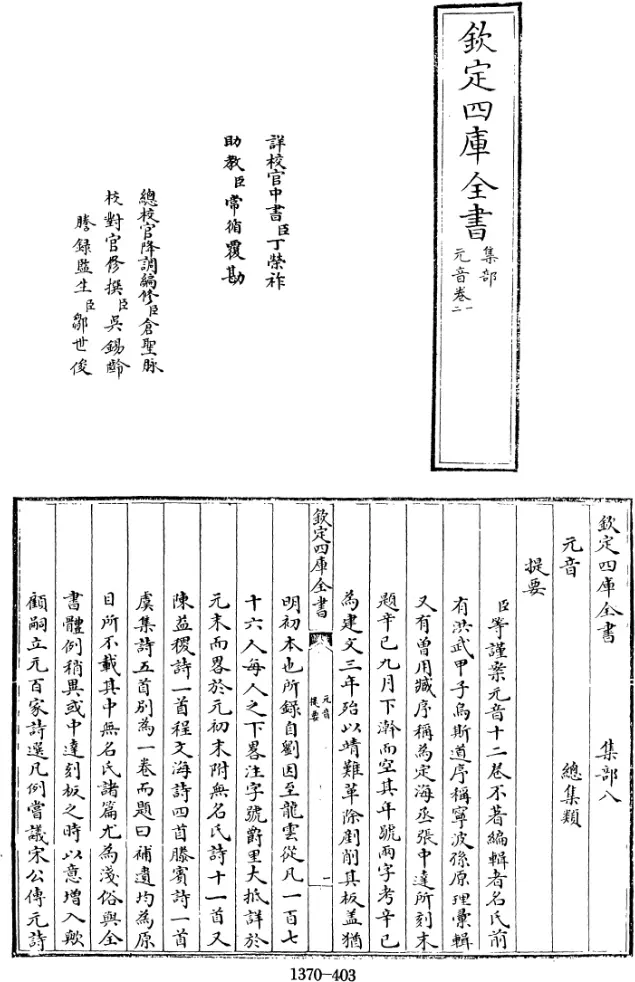 欽定四庫全書
集部
元音卷一二
詳校官中書臣丁榮祚
助教臣常循覆勘
總校官降調編修臣倉聖脉
校對官修撰臣吳錫齡
謄錄監生臣鄒世俊
欽定四庫全書 集部八
元音 總集類
提要
臣等謹案元音十二卷不著編輯者名氏前
有洪武甲子烏斯道序稱寧波孫原理彙輯
又有曾用臧序稱為定海丞張中達所刻末
題辛巳九月下澣而空其年號兩字考辛巳
為建文三年殆以靖難革除劃削其板盖猶
欽定四庫全書 元音 提要 一
明初本也所錄自劉因至龍雲從凡一百七
十六人每人之下畧注字號爵里大抵詳於
元末而畧於元初末附無名氏詩十一首又
陳益稷詩一首程文海詩四首滕賓詩一首
虞集詩五首別為一卷而題曰補遺均為原
目所不載其中無名氏諸篇尤為淺俗與全
書體例稍異或中達刻板之時以意增入歟
顧嗣立元百家詩選凡例嘗議宋公傳元詩
1370-403